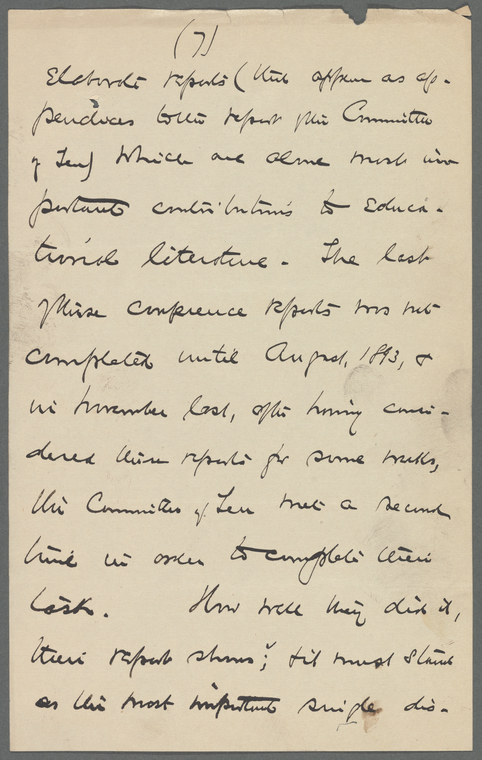 (7)
Elaborate reports (that appear as ap-
pendices to the report of the Committee
of Ten) which are alone most im
portant contributions to Educa-
tional literature. The last
of these conference reports was not
completed until August, 1893, &
in November last, after having consi-
dered these reports for some weeks,
the Committee of Ten met a second
time in order to complete their
task. How well they did it,
their report shows; & it must stand
as the most important single dis-